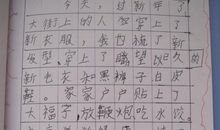 今天，过新年了
大街上的人都穿上了
新衣服，我也梳了新
发型，穿上了盼望以久的
新衣和黑裤子白皮
鞋。家家户户贴上了
大福字，放鞭炮吃水饺。